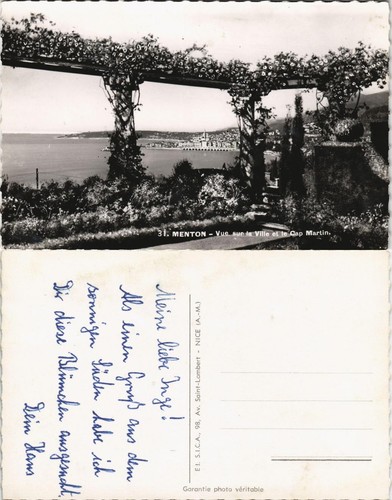 31. MENTON – Vue sur la Ville et le Cap Martin.
Meine liebe Inge!
Als einen Gruß aus dem
sonnigen Süden habe ich
Dir diese Blümchen ausgesucht,
Dein Hans
E^t. S.I.C.A.- 98, Av. Saint-Lambert - NICE (A.-M.)
Garantie photo véritable